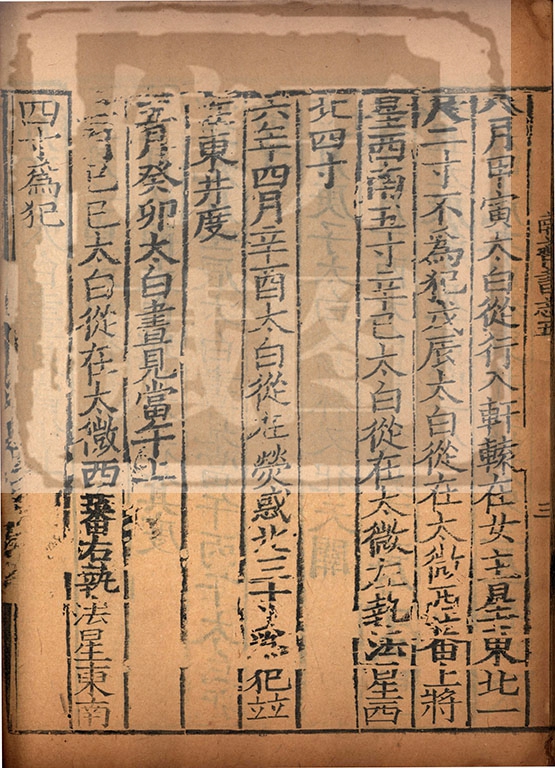 南齊書志五
三
八月甲寅太白從行入軒轅在女主星東北一
尺二寸不為犯戊辰太白從在太微西蕃上將
星西南五寸辛巳太白從在太微左執法星西
北四寸
六年四月辛酉太白從在熒惑北三寸為犯竝
在東井度
五月癸卯太白晝見當午上
月己巳太白從在太微西蕃右執法星東南
四寸為犯